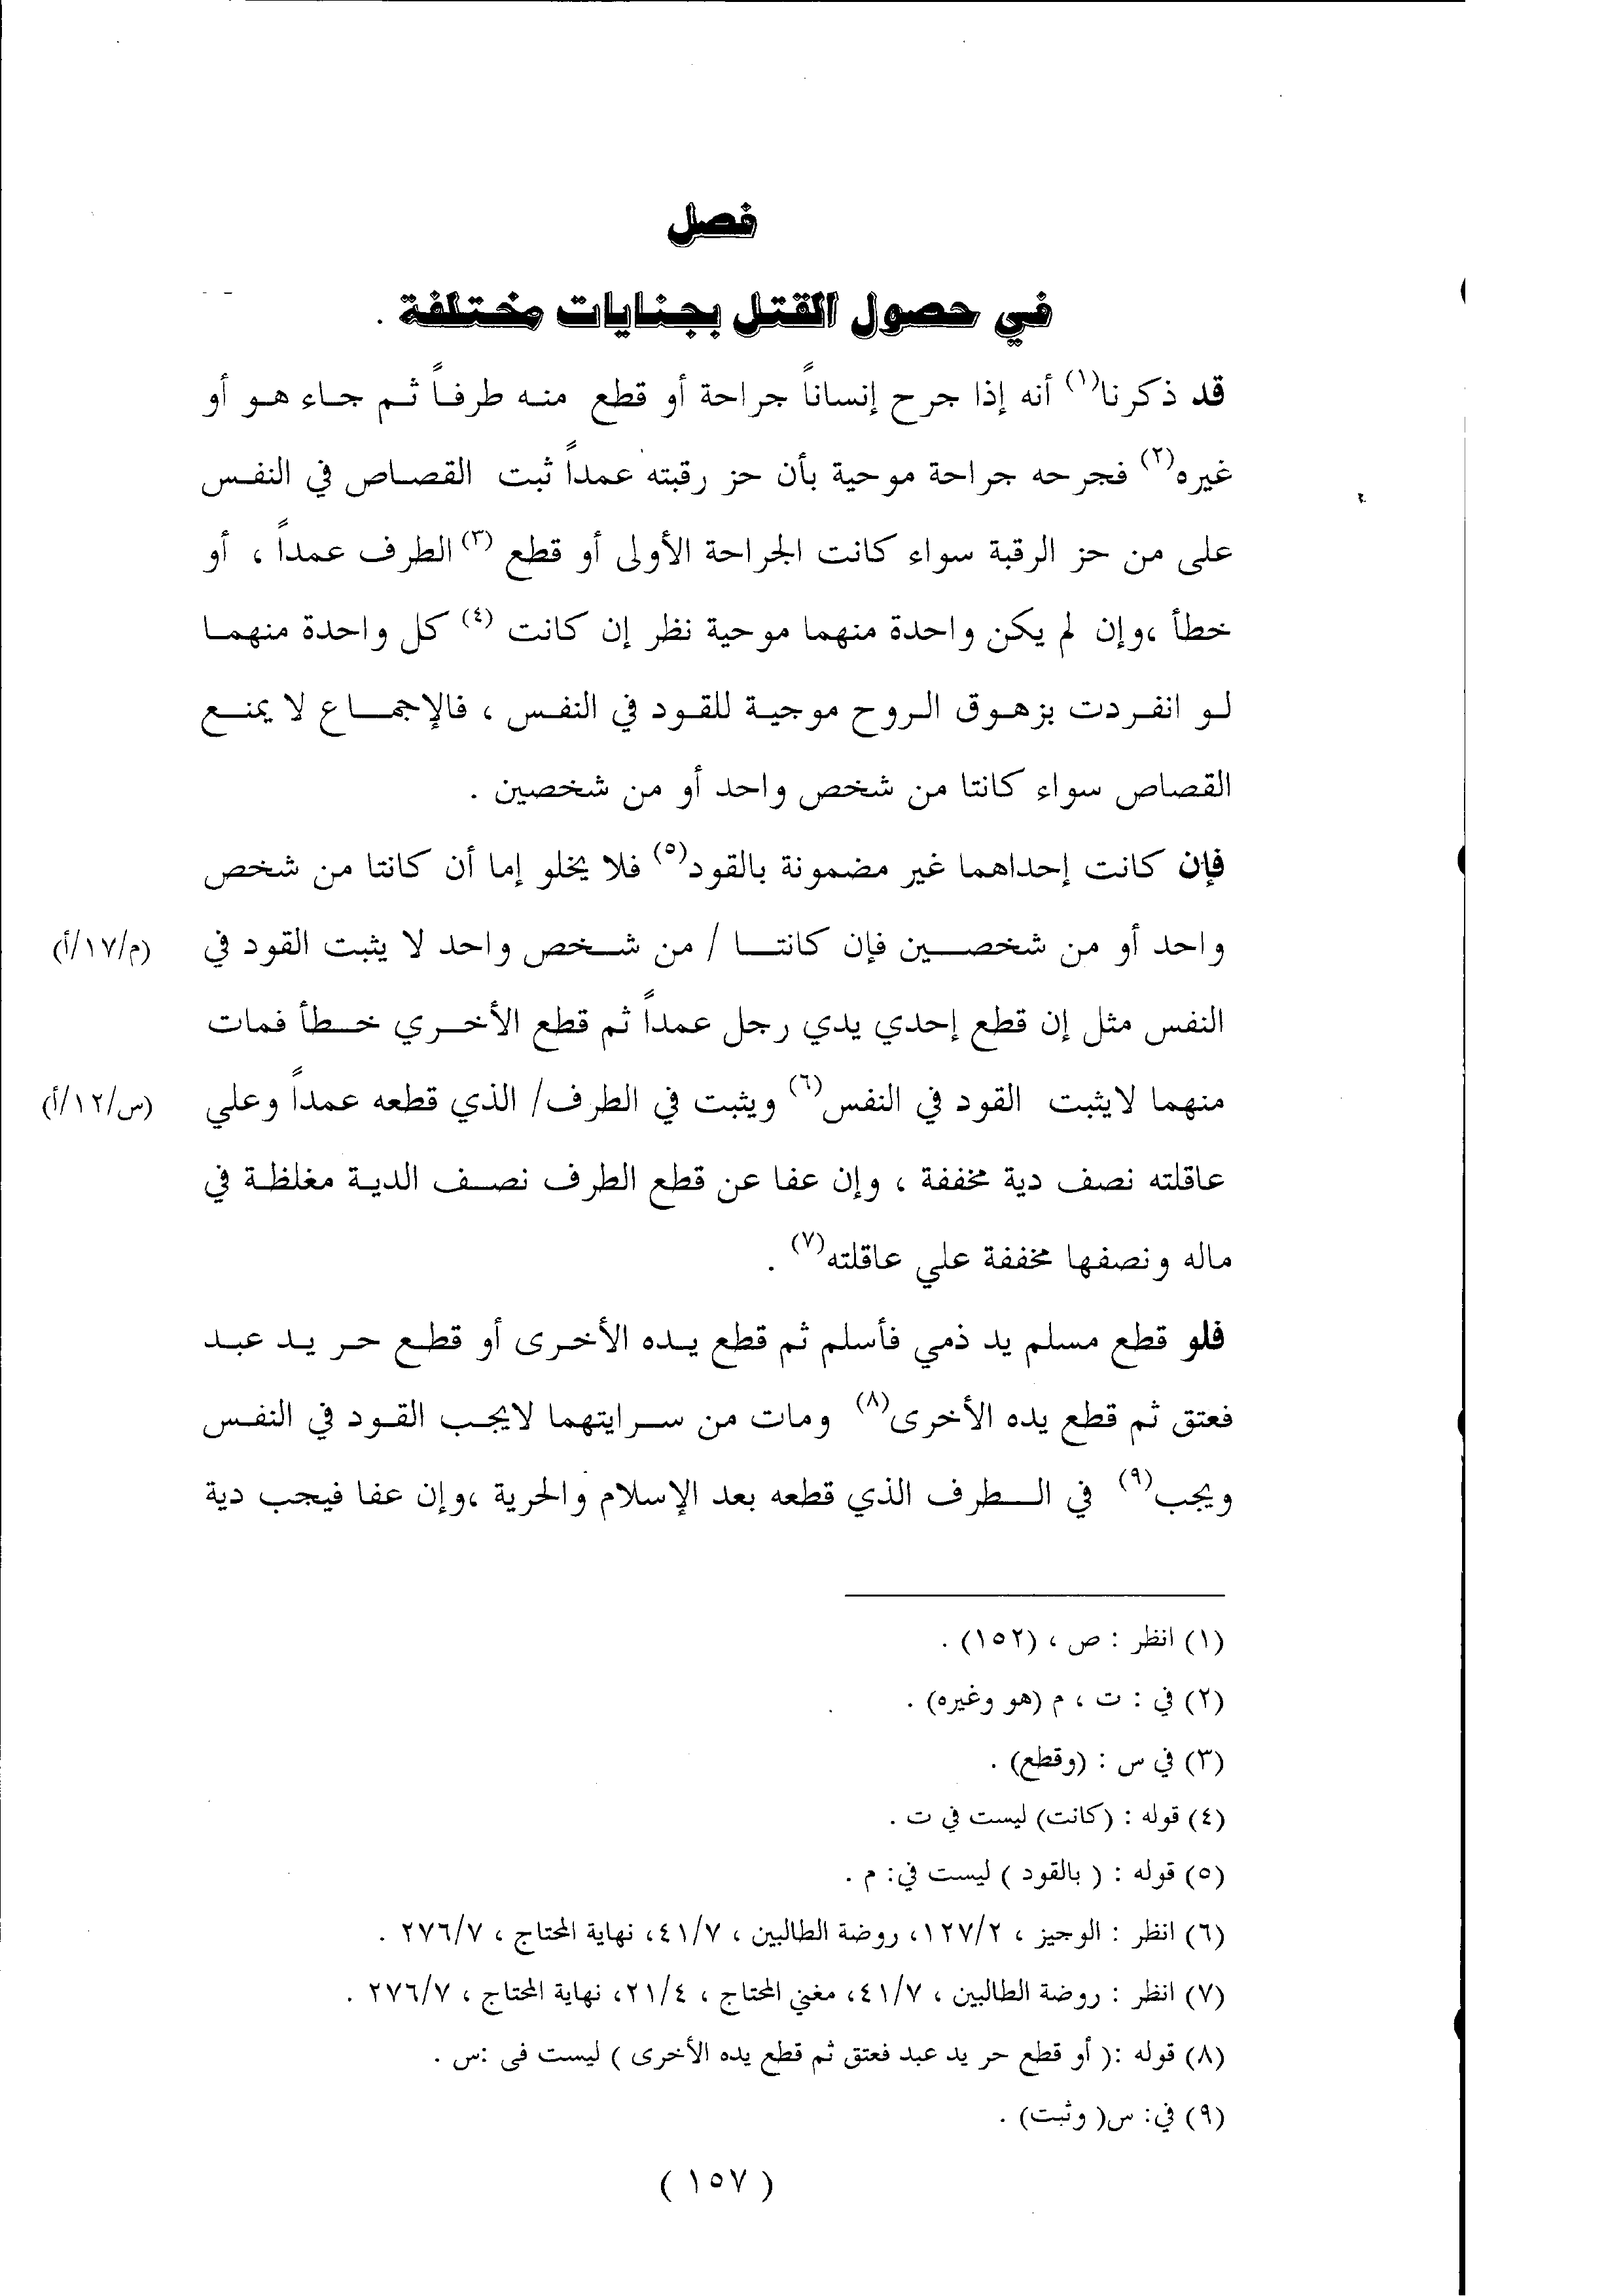 فصل
في حصول القتل بجنايات مختلفة .
قد ذكرنا(١) أنه إذا جرح إنساناً جراحة أو قطع منه طرفاً ثم جاء هو أو
غيره(٢) فجرحه جراحة موحية بأن حز رقبته عمداً ثبت القصاص في النفس
على من حز الرقبة سواء كانت الجراحة الأولى أو قطع (٣) الطرف عمداً ، أو
خطأ ،وإن لم يكن واحدة منهما موحية نظر إن كانت (٤) كل واحدة منهما
لو انفردت بزهوق الروح موجبة للقود في النفس ، فالإجماع لا يمنع
القصاص سواء كانتا من شخص واحد أو من شخصين .
فإن كانت إحداهما غير مضمونة بالقود(٥) فلا يخلو إما أن كانتا من شخص
واحد أو من شخصين فإن كانتا / من شخص واحد لا يثبت القود في (م/١٧/أ)
النفس مثل إن قطع إحدي يدي رجل عمداً ثم قطع الأخري خطأ فمات
منهما لايثبت القود في النفس(٦) ويثبت في الطرف/ الذي قطعه عمداً وعلي (س/١٢/أ)
عاقلته نصف دية مخففة ، وإن عفا عن قطع الطرف نصف الدية مغلظة في
ماله ونصفها مخففة علي عاقلته(٧) .
فلو قطع مسلم يد ذمي فأسلم ثم قطع يده الأخرى أو قطع حر يد عبد
فعتق ثم قطع يده الأخرى(٨) ومات من سرايتهما لايجب القود في النفس
ويجب(٩) في الطرف الذي قطعه بعد الإسلام والحرية ،وإن عفا فيجب دية
(١) انظر : ص ، (١٥٢) .
(٢) في : ت ، م (هو وغيره) .
(٣) في س : (وقطع) .
(٤) قوله : (كانت) ليست في ت .
(٥) قوله : ( بالقود ) ليست في: م .
(٦) انظر : الوجيز ، ١٢٧/٢، روضة الطالبين ، ٤١/٧، نهاية المحتاج ، ٢٧٦/٧ .
(٧) انظر : روضة الطالبين ، ٤١/٧، مغني المحتاج ، ٢١/٤، نهاية المحتاج ، ٢٧٦/٧ .
(٨) قوله :( أو قطع حر يد عبد فعتق ثم قطع يده الأخرى ) ليست فى :س .
(٩) في: س( وثبت) .
( ١٥٧ )